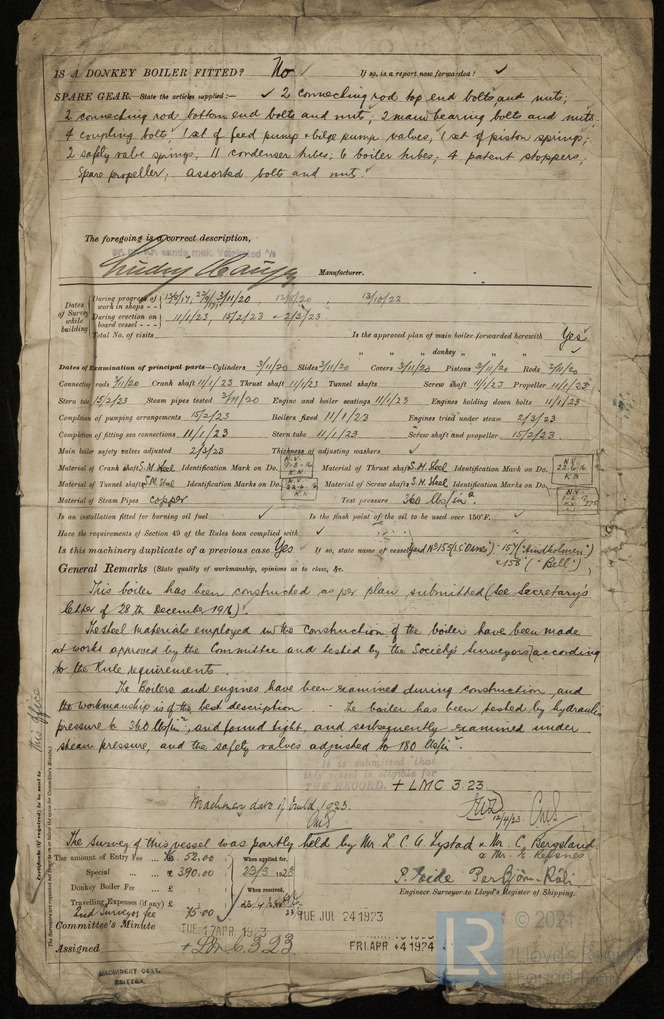 IS A DONKEY BOILER FITTED? No ✓ If so, is a report now forwarded? ✓
SPARE GEAR.—State the articles supplied:— ✓ 2 connecting rod top end bolts and nuts;
2 connecting rod bottom end bolts and nuts; 2 main bearing bolts and nuts;
4 coupling bolts; 1 set of feed pump & bilge pump valves; 1 set of piston springs;
2 safety valve springs; 11 condenser tubes; 6 boiler tubes; 4 patent stoppers;
Spare propeller; assorted bolts and nuts.
The foregoing is a correct description,
Manufacturer.
Dates of Survey while building
During progress of work in shops - - 3/11/20, 13/10/22
During erection on board vessel - - - 11/1/23, 15/2/23 & 2/3/23
Total No. of visits Is the approved plan of main boiler forwarded herewith Yes
" " " donkey " " ✓
Dates of Examination of principal parts—Cylinders 3/11/20 Slides 3/11/20 Covers 3/11/20 Pistons 3/11/20 Rods 3/11/20
Connecting rods 3/11/20 Crank shaft 11/1/23 Thrust shaft 11/1/23 Tunnel shafts Screw shaft 11/1/23 Propeller 11/1/23
Stern tube 15/2/23 Steam pipes tested Engine and boiler seatings 11/1/23 Engines holding down bolts 11/1/23
Completion of pumping arrangements 15/2/23 Boilers fixed 11/1/23 Engines tried under steam 2/3/23
Completion of fitting sea connections 11/1/23 Stern tube 11/1/23 Screw shaft and propeller 15/2/23
Main boiler safety valves adjusted 2/3/23 Thickness of adjusting washers ✓
Material of Crank shaft S.M. Steel Identification Mark on Do. Material of Thrust shaft S.M. Steel Identification Mark on Do.
Material of Tunnel shafts S.M. Steel Identification Marks on Do. Material of Screw shafts S.M. Steel Identification Marks on Do.
Material of Steam Pipes copper Test pressure 360 lbs/in².
Is an installation fitted for burning oil fuel ✓ Is the flash point of the oil to be used over 150°F. ✓
Have the requirements of Section 49 of the Rules been complied with ✓
Is this machinery duplicate of a previous case Yes If so, state name of vessel Yard No 155 157 ("Lindholmen")
& 158 ("Bell")
General Remarks (State quality of workmanship, opinions as to class, &c.
This boiler has been constructed as per plan submitted (See Secretary's
letter of 28th December 1916)
The steel materials employed in the construction of the boiler have been made
at works approved by the Committee and tested by the Society's Surveyors according
to the Rule requirements.
The Boilers and engines have been examined during construction, and
the workmanship is of the best description. - The boiler has been tested by hydraulic
pressure to 360 lbs/in², and found tight, and subsequently examined under
steam pressure, and the safety valves adjusted to 180 lbs/in².
It is submitted that
this vessel is eligible for
THE RECORD. + LMC 3.23
Machinery date of build, 1923.
12/4/23
The survey of this vessel was partly held by Mr. L C A Lystad & Mr. C. Bergsland
The amount of Entry Fee ... Kr. 52.00 When applied for,
Special ... " 390.00 23/3 1923
Donkey Boiler Fee ... When received,
Travelling Expenses (if any)
2nd Surveyors fee 75.00
Engineer Surveyor to Lloyd's Register of Shipping.
Committee's Minute TUE 17 APR 1923 TUE JUL 24 1923
FRI. APR 4 1924
Assigned + LMC 3.23
MACHINERY CERT.
WRITTEN.
Certificate (if required) to be sent to this office
The Surveyors are requested not to write on or below the space for Committee's Minute.
© 2021
LR
Lloyd's Register
Foundation